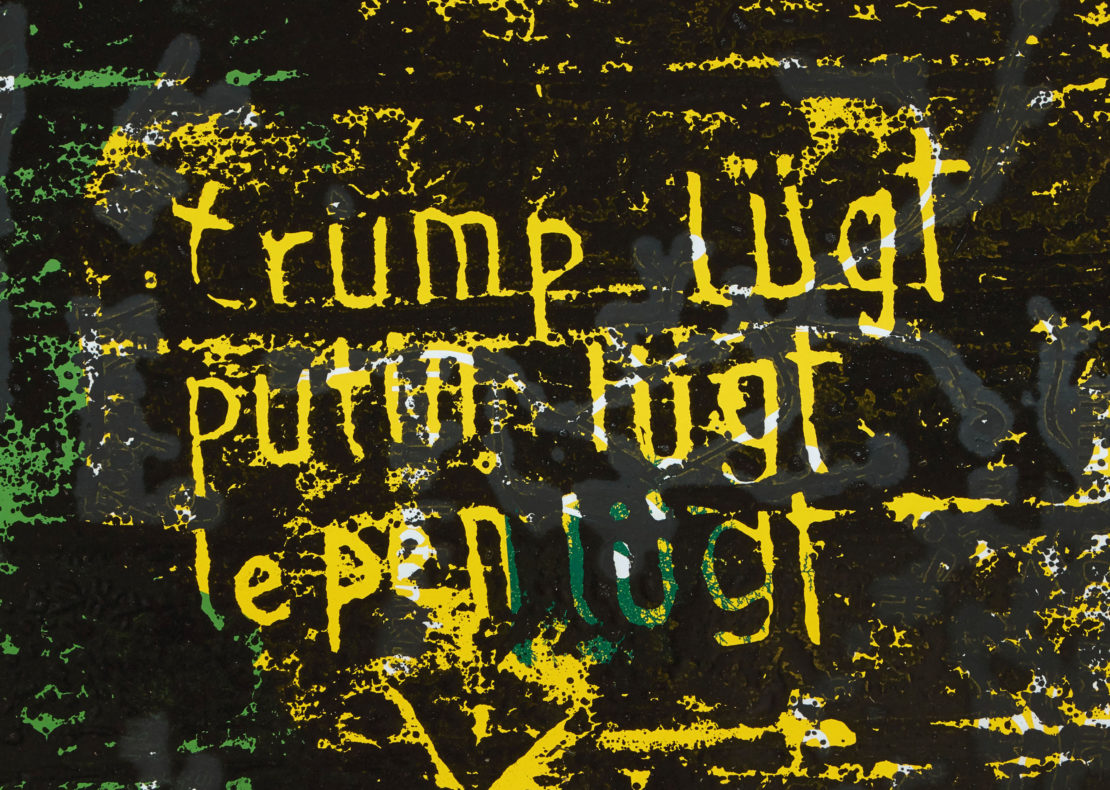 trump lügt
putin lügt
le pen lügt